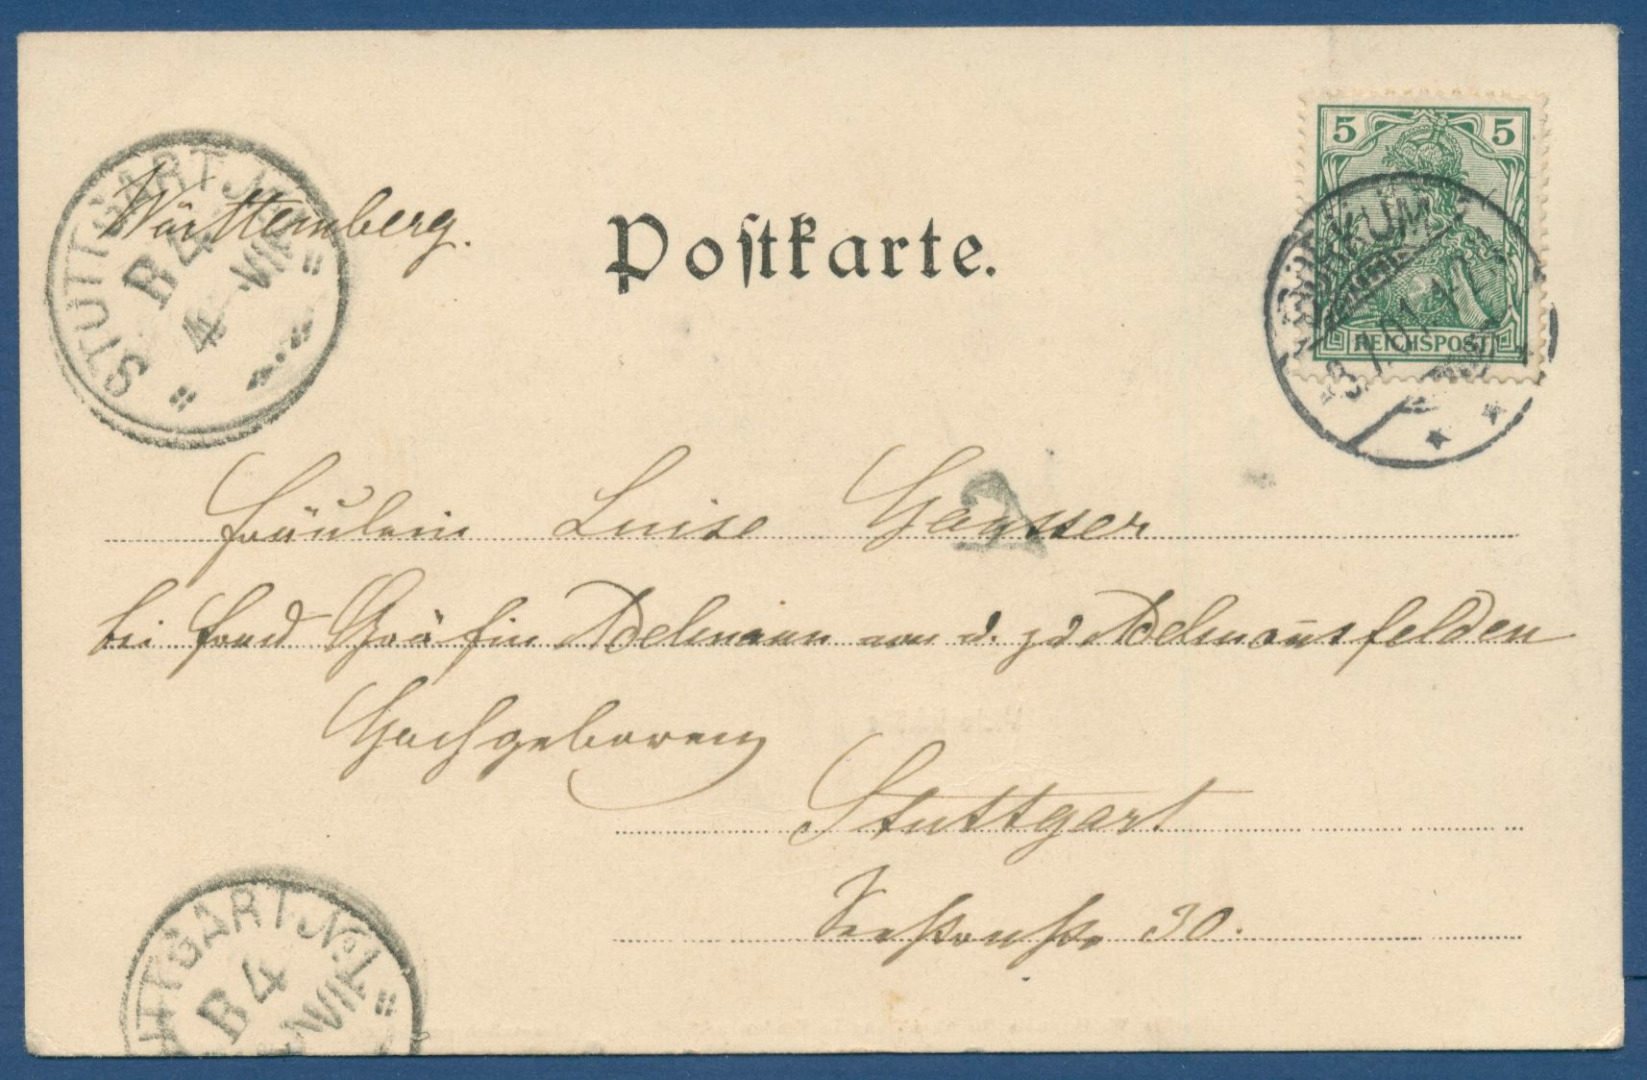 STUTTGART No 1
B 4
4 VII
Württemberg.
Postkarte.
5 5
REICHSPOST
BORKUM
3.7.01.
2
Fräulein Luise
bei Frau Gräfin Adelmann von u. zu Adelmannsfelden
Hochgeboren
Stuttgart
Seestraße 30.
STUTTGART No 1
B 4
VII